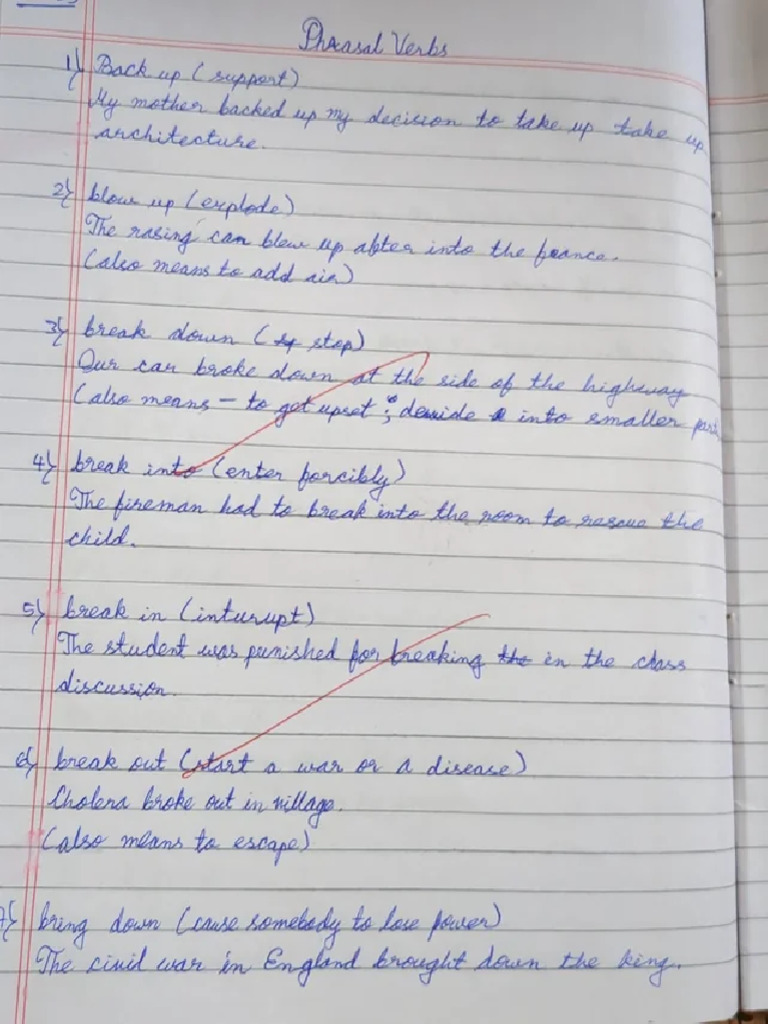 Phrasal Verbs
1} Back up (support)
My mother backed up my decision to take up take up
architecture.
2} blow up (explode)
The rasing can blew up abter into the feance.
(also means to add air)
3} break down (st stop)
Our car broke down at the side of the highway
(also means - to get upset ; devide into smaller part
4} break into (enter forcibly)
The fireman had to break into the room to rescue the
child.
5} break in (inturupt)
The student was punished for breaking the in the class
discussion.
6} break out (start a war or a disease)
Cholera broke out in village.
(also means to escape)
7} bring down (cause somebody to lose power)
The civil war in England brought down the king.